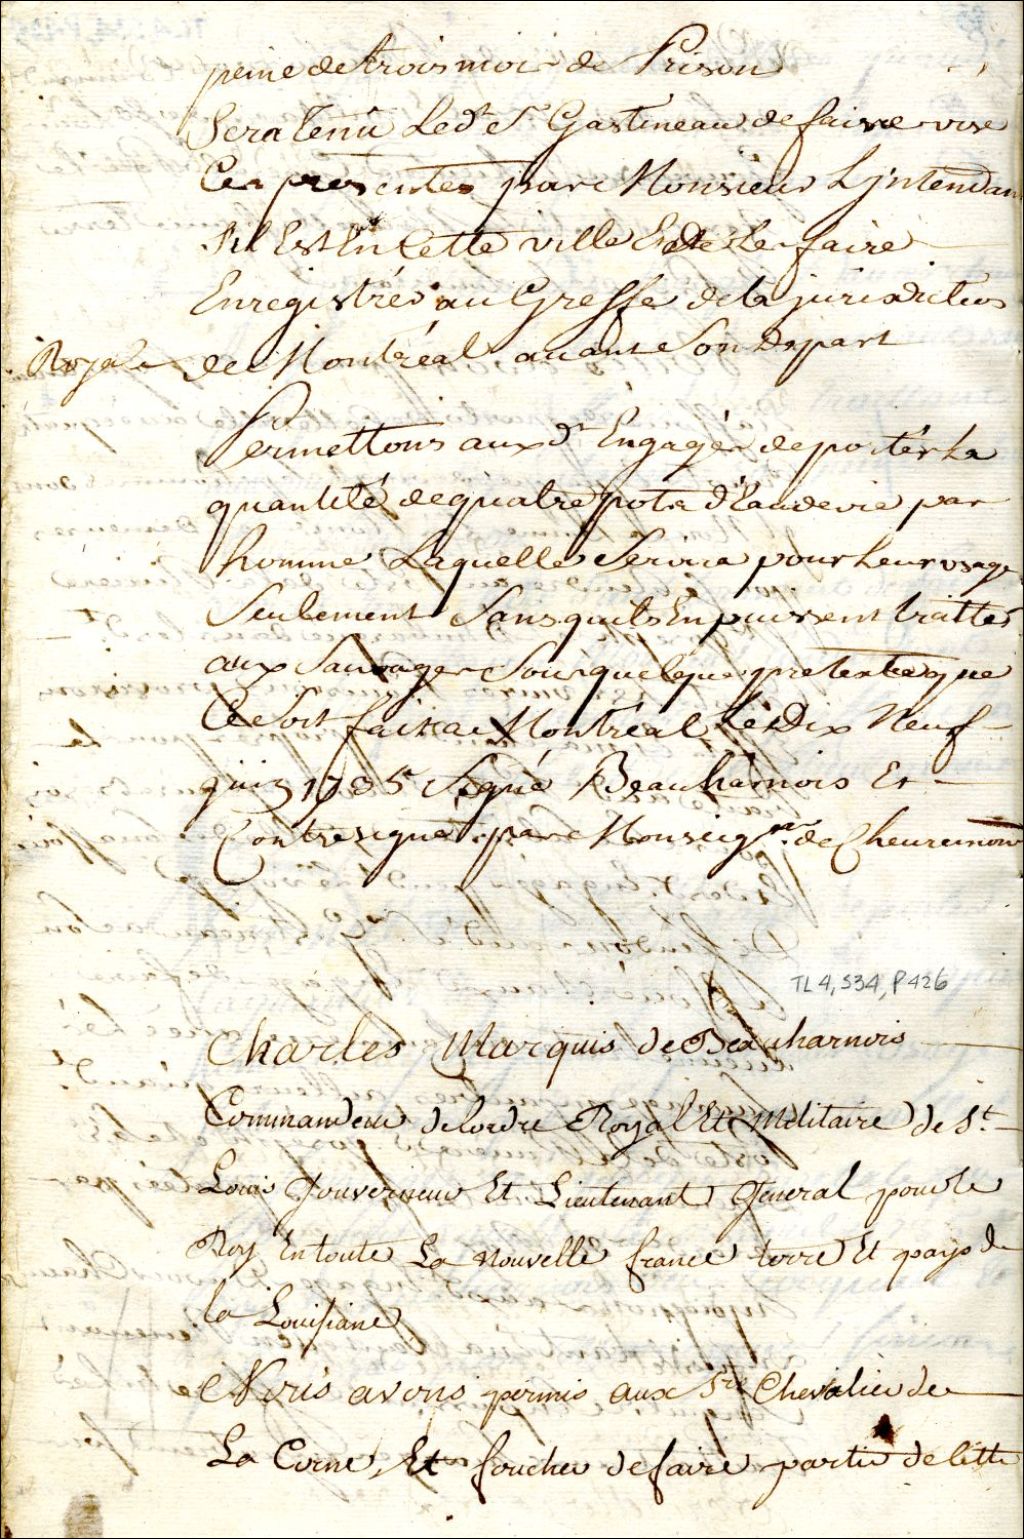 peine de trois moi de Prison
Sera Tenu Led. Sr Gastineau de faire vise
Ces presentes par Monsieur L'jntendan
Sil Est En Cette ville Et de Le faire
Enregistrér au Greffe de la jurisdiction
Royale de Montréal auant Son Depart
Permettons aux dt Engagér de portér La
quantité de quatre pots d'Eau de vie par
homme Laquelle Servira pour Leur vsage
Seulement Sans quils En puissent traitter
aux Sauvages Sous quelque pretexte que
Ce Soit fait a Montréal Le Dix Neuf
juin 1735 Signé Beauharnois Et
Contresigné par Monseigr. de Cheuremont
TL4, S34, P426
Charles Marquis de Beauharnois
Commandeur de lordre Royal Et Militaire de St.
Louis Gouverneur Et Lieutenant General pour le
Roy En toute La Nouvelle france terre Et pays de
la Louisiane
Nous avons permis aux Srs Chevalier de
La Corne, Et foucher de faire partir de Cette